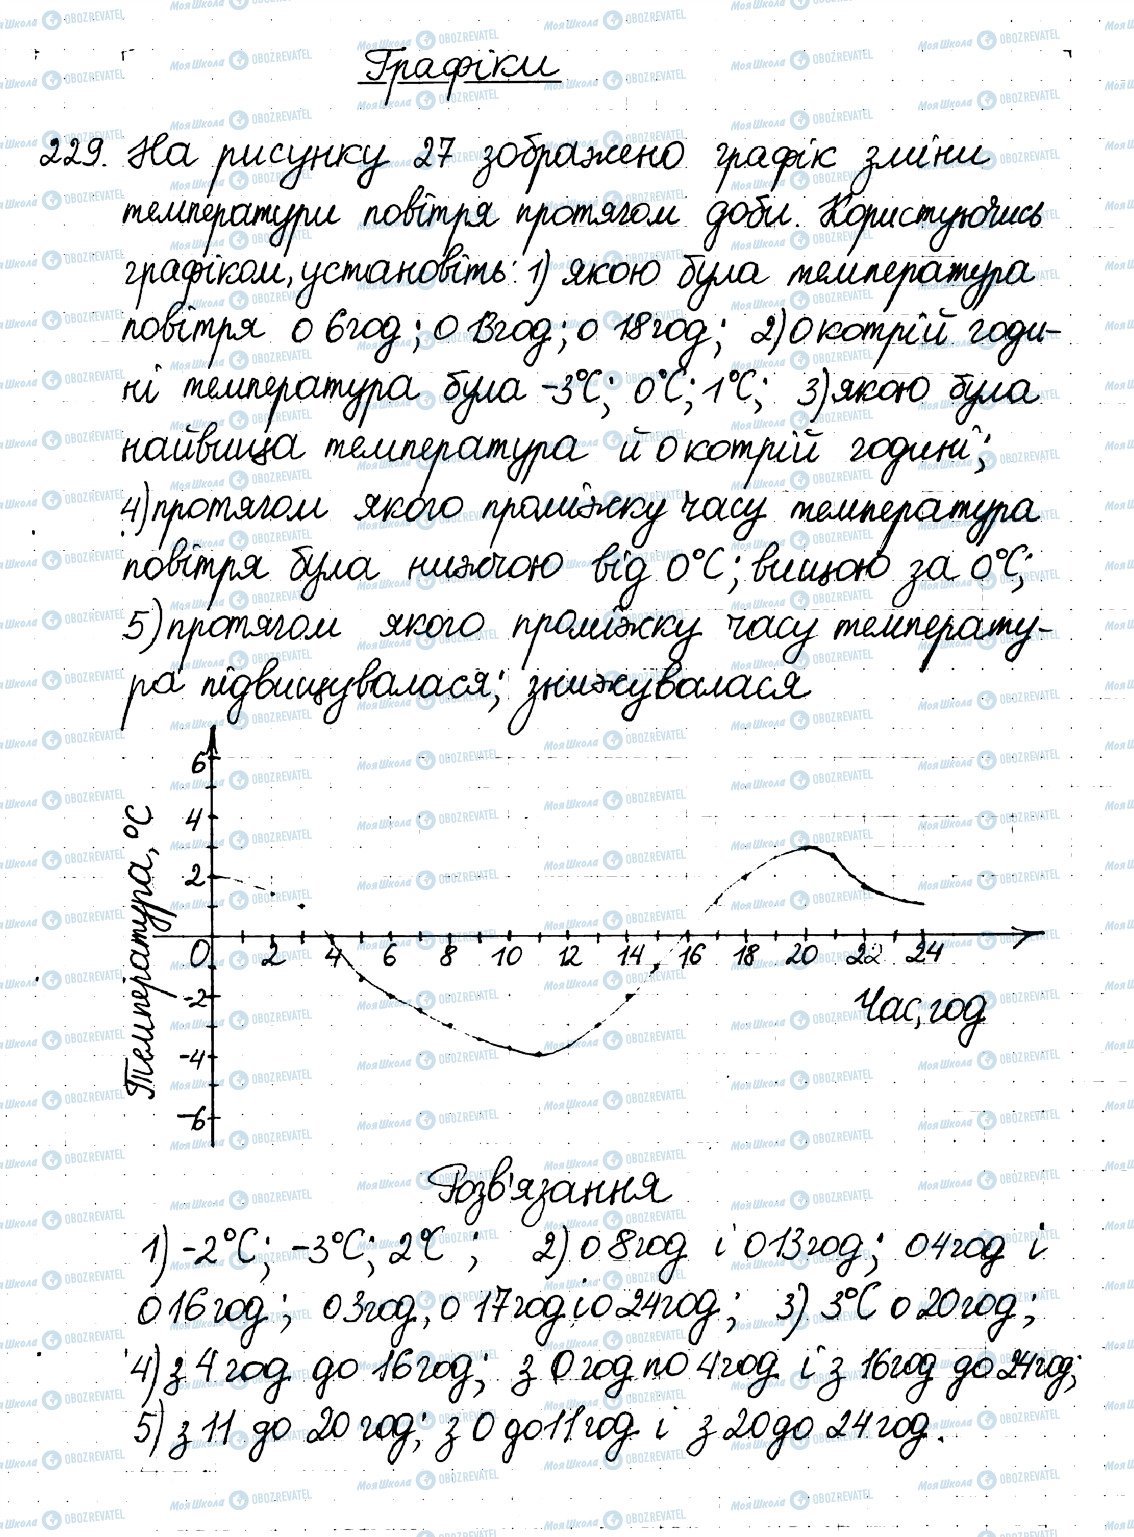 Графіки
229. На рисунку 27 зображено графік зміни
температури повітря протягом доби. Користуючись
графіком, установіть: 1) якою була температура
повітря о 6 год; о 13 год; о 18 год; 2) о котрій годи-
ні температура була -3°C; 0°C; 1°C; 3) якою була
найвища температура й о котрій годині;
4) протягом якого проміжку часу температура
повітря була нижчою від 0°C; вищою за 0°C;
5) протягом якого проміжку часу температу-
ра підвищувалася; знижувалася
Температура, °C
6
4
2
0 2 4 6 8 10 12 14 16 18 20 22 24
-2
-4
-6
Час, год
Розв'язання
1) -2°C; -3°C; 2°C; 2) о 8 год і о 13 год; о 4 год і
о 16 год; о 3 год, о 17 год і о 24 год; 3) 3°C о 20 год;
4) з 4 год до 16 год; з 0 год по 4 год і з 16 год до 24 год;
5) з 11 до 20 год; з 0 до 11 год і з 20 до 24 год.
Моя Школа OBOZREVATEL